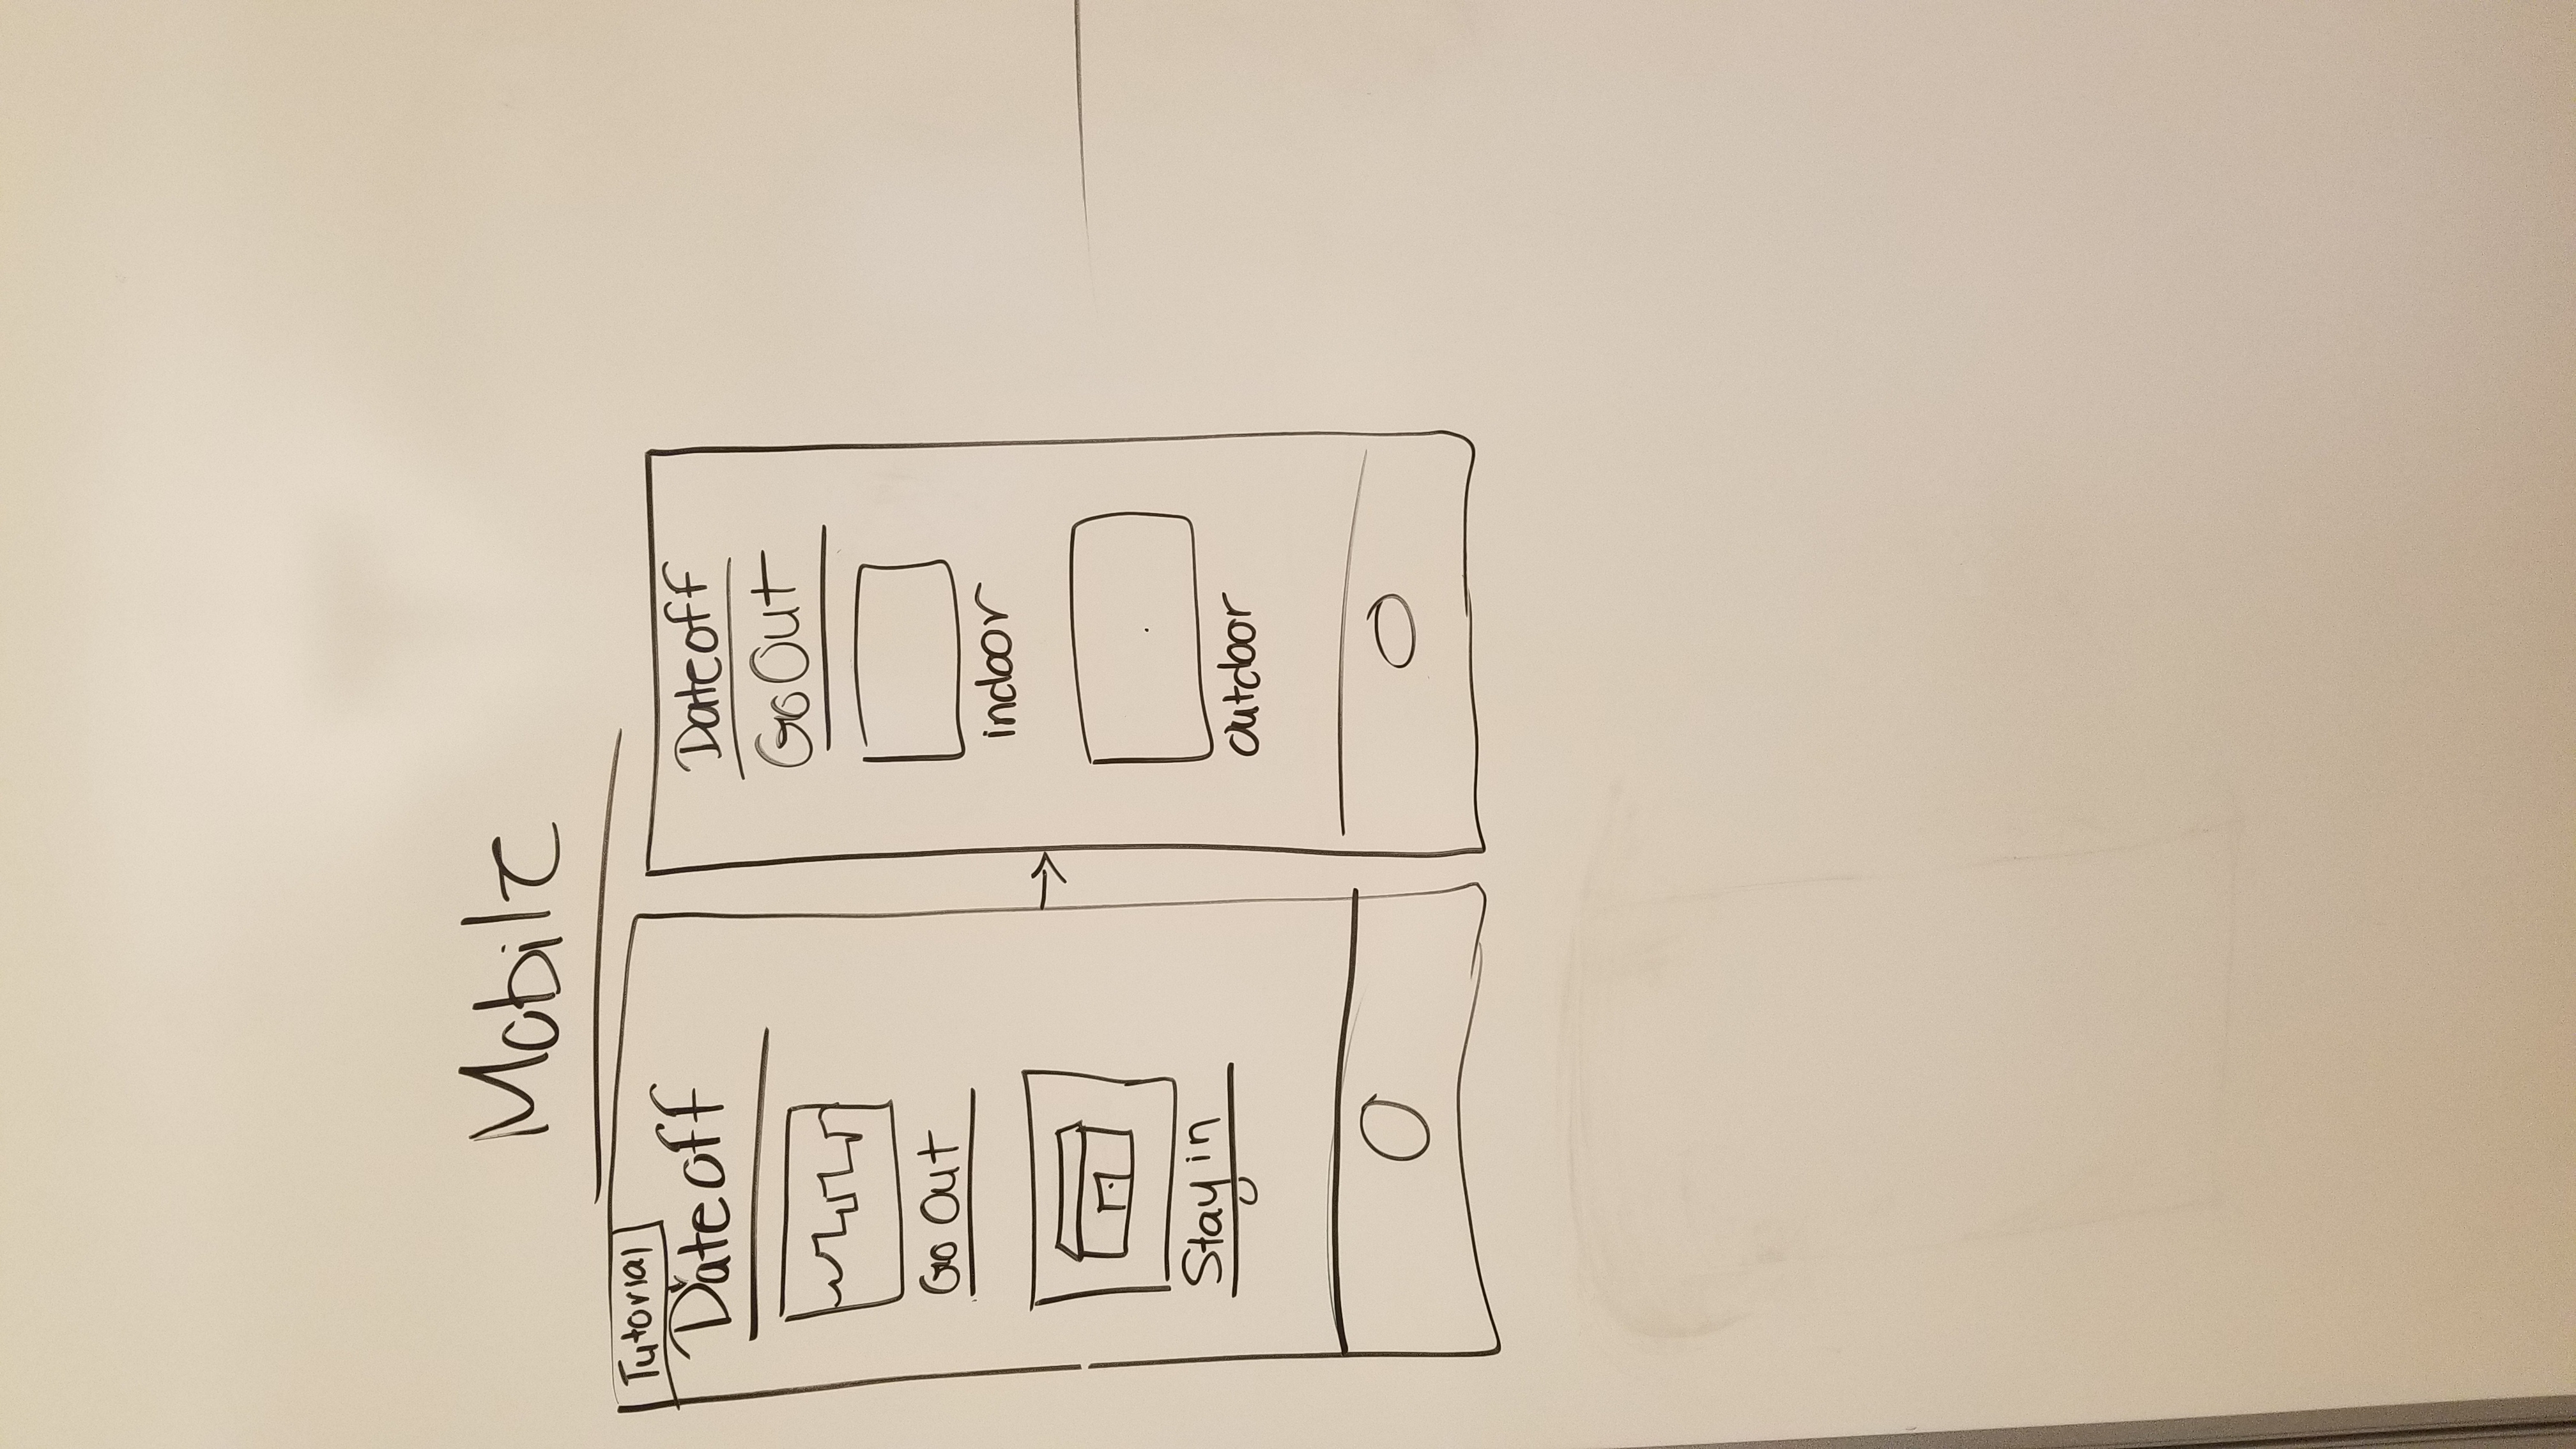 Mobile
Tutorial
Dateoff
Go Out
Stay in
Dateoff
Go Out
indoor
outdoor